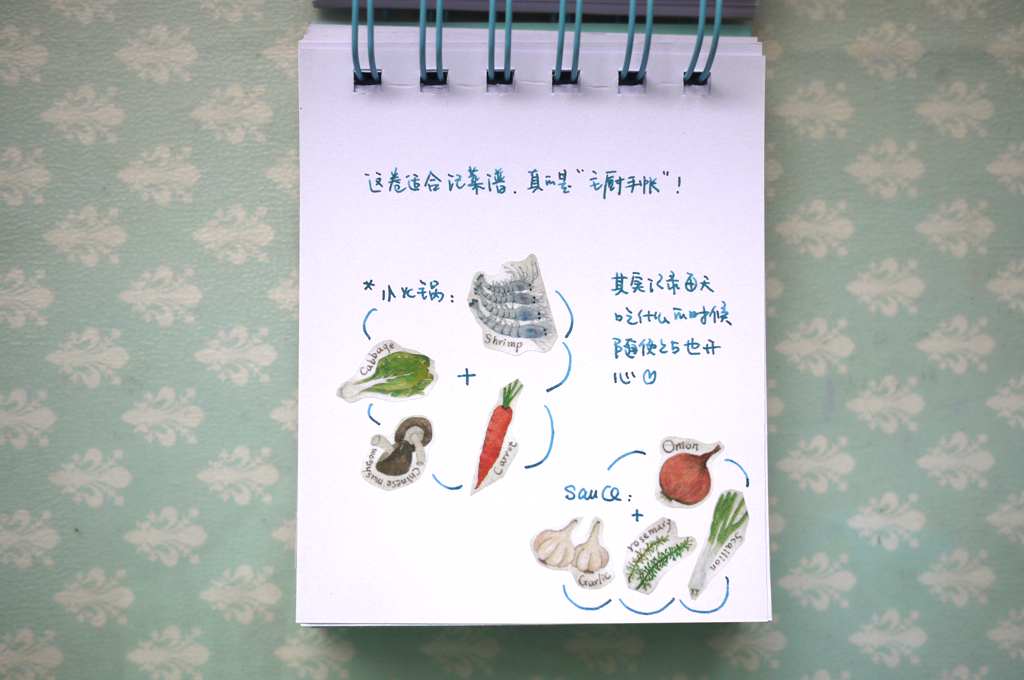 这卷适合记菜谱.真的是"主厨手帐"!
*小火锅:
Shrimp
Cabbage
+
Chinese mushroom
Carrot
其实记录每天
吃什么的时候
随便巧也开
心♡
Onion
sauce:
+
Garlic
rosemary
Scallion